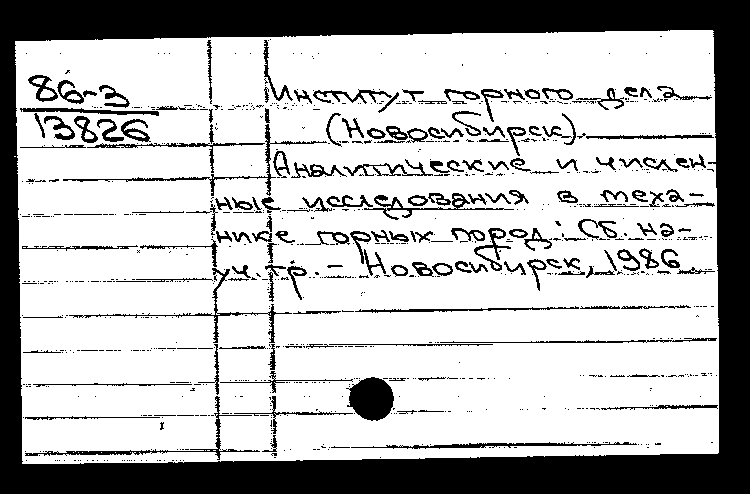 86-3
13826
Институт горного дела
(Новосибирск).
Аналитические и числен-
ные исследования в меха-
нике горных пород: Сб. на-
уч. тр. – Новосибирск, 1986.